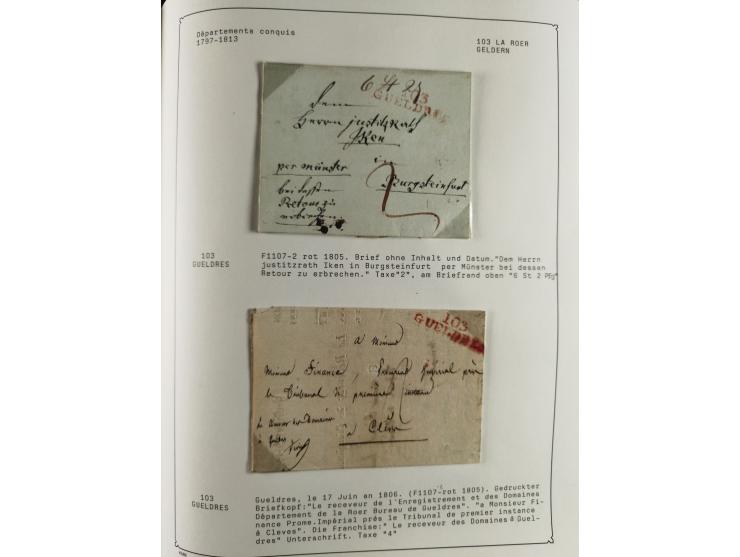 Départements conquis
1797-1813
103 LA ROER
GELDERN
6 St 2
103
GUELDRES
Dem
Herrn justitzRath
Iken
in
per münster
Burgsteinfurt
bei dessen
Retour zu
erbrechen
2
103
GUELDRES
F1107-2 rot 1805. Brief ohne Inhalt und Datum."Dem Herrn
justitzrath Iken in Burgsteinfurt per Münster bei dessen
Retour zu erbrechen." Taxe"2", am Briefrand oben "6 St 2 Pfg"
103
GUELDRES
a
Finance, Imperial près
le Tribunal de premiere instance
à
Clèves
103
GUELDRES
Gueldres, le 17 Juin an 1806. (F1107-rot 1805). Gedruckter
Briefkopf:"Le receveur de l'Enregistrement et des Domaines
Département de la Roer Bureau de Gueldres". "a Monsieur Fi-
nence Prome.Impérial prés le Tribunal de premier instance
à Cleves". Die Franchise:" Le receveur des Domaines â Guel-
dres" Unterschrift. Taxe "4"